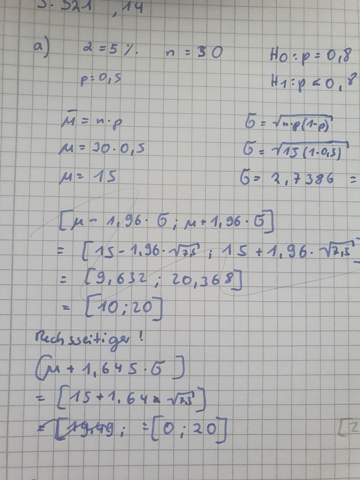 S. 321, 14
a) α = 5% n = 30 H0: p = 0,8
p = 0,5 H1: p < 0,8
μ = n·p σ = √n·p(1-p)
μ = 30·0,5 σ = √15(1-0,5)
μ = 15 σ = 2,7386 =
[μ - 1,96·σ ; μ + 1,96·σ]
= [15 - 1,96·√7,5 ; 15 + 1,96·√7,5]
= [9,632 ; 20,368]
= [10 ; 20]
Rechtsseitiger!
[μ + 1,645·σ]
= [15 + 1,64·√7,5]
= [19,49 ; = [0 ; 20]